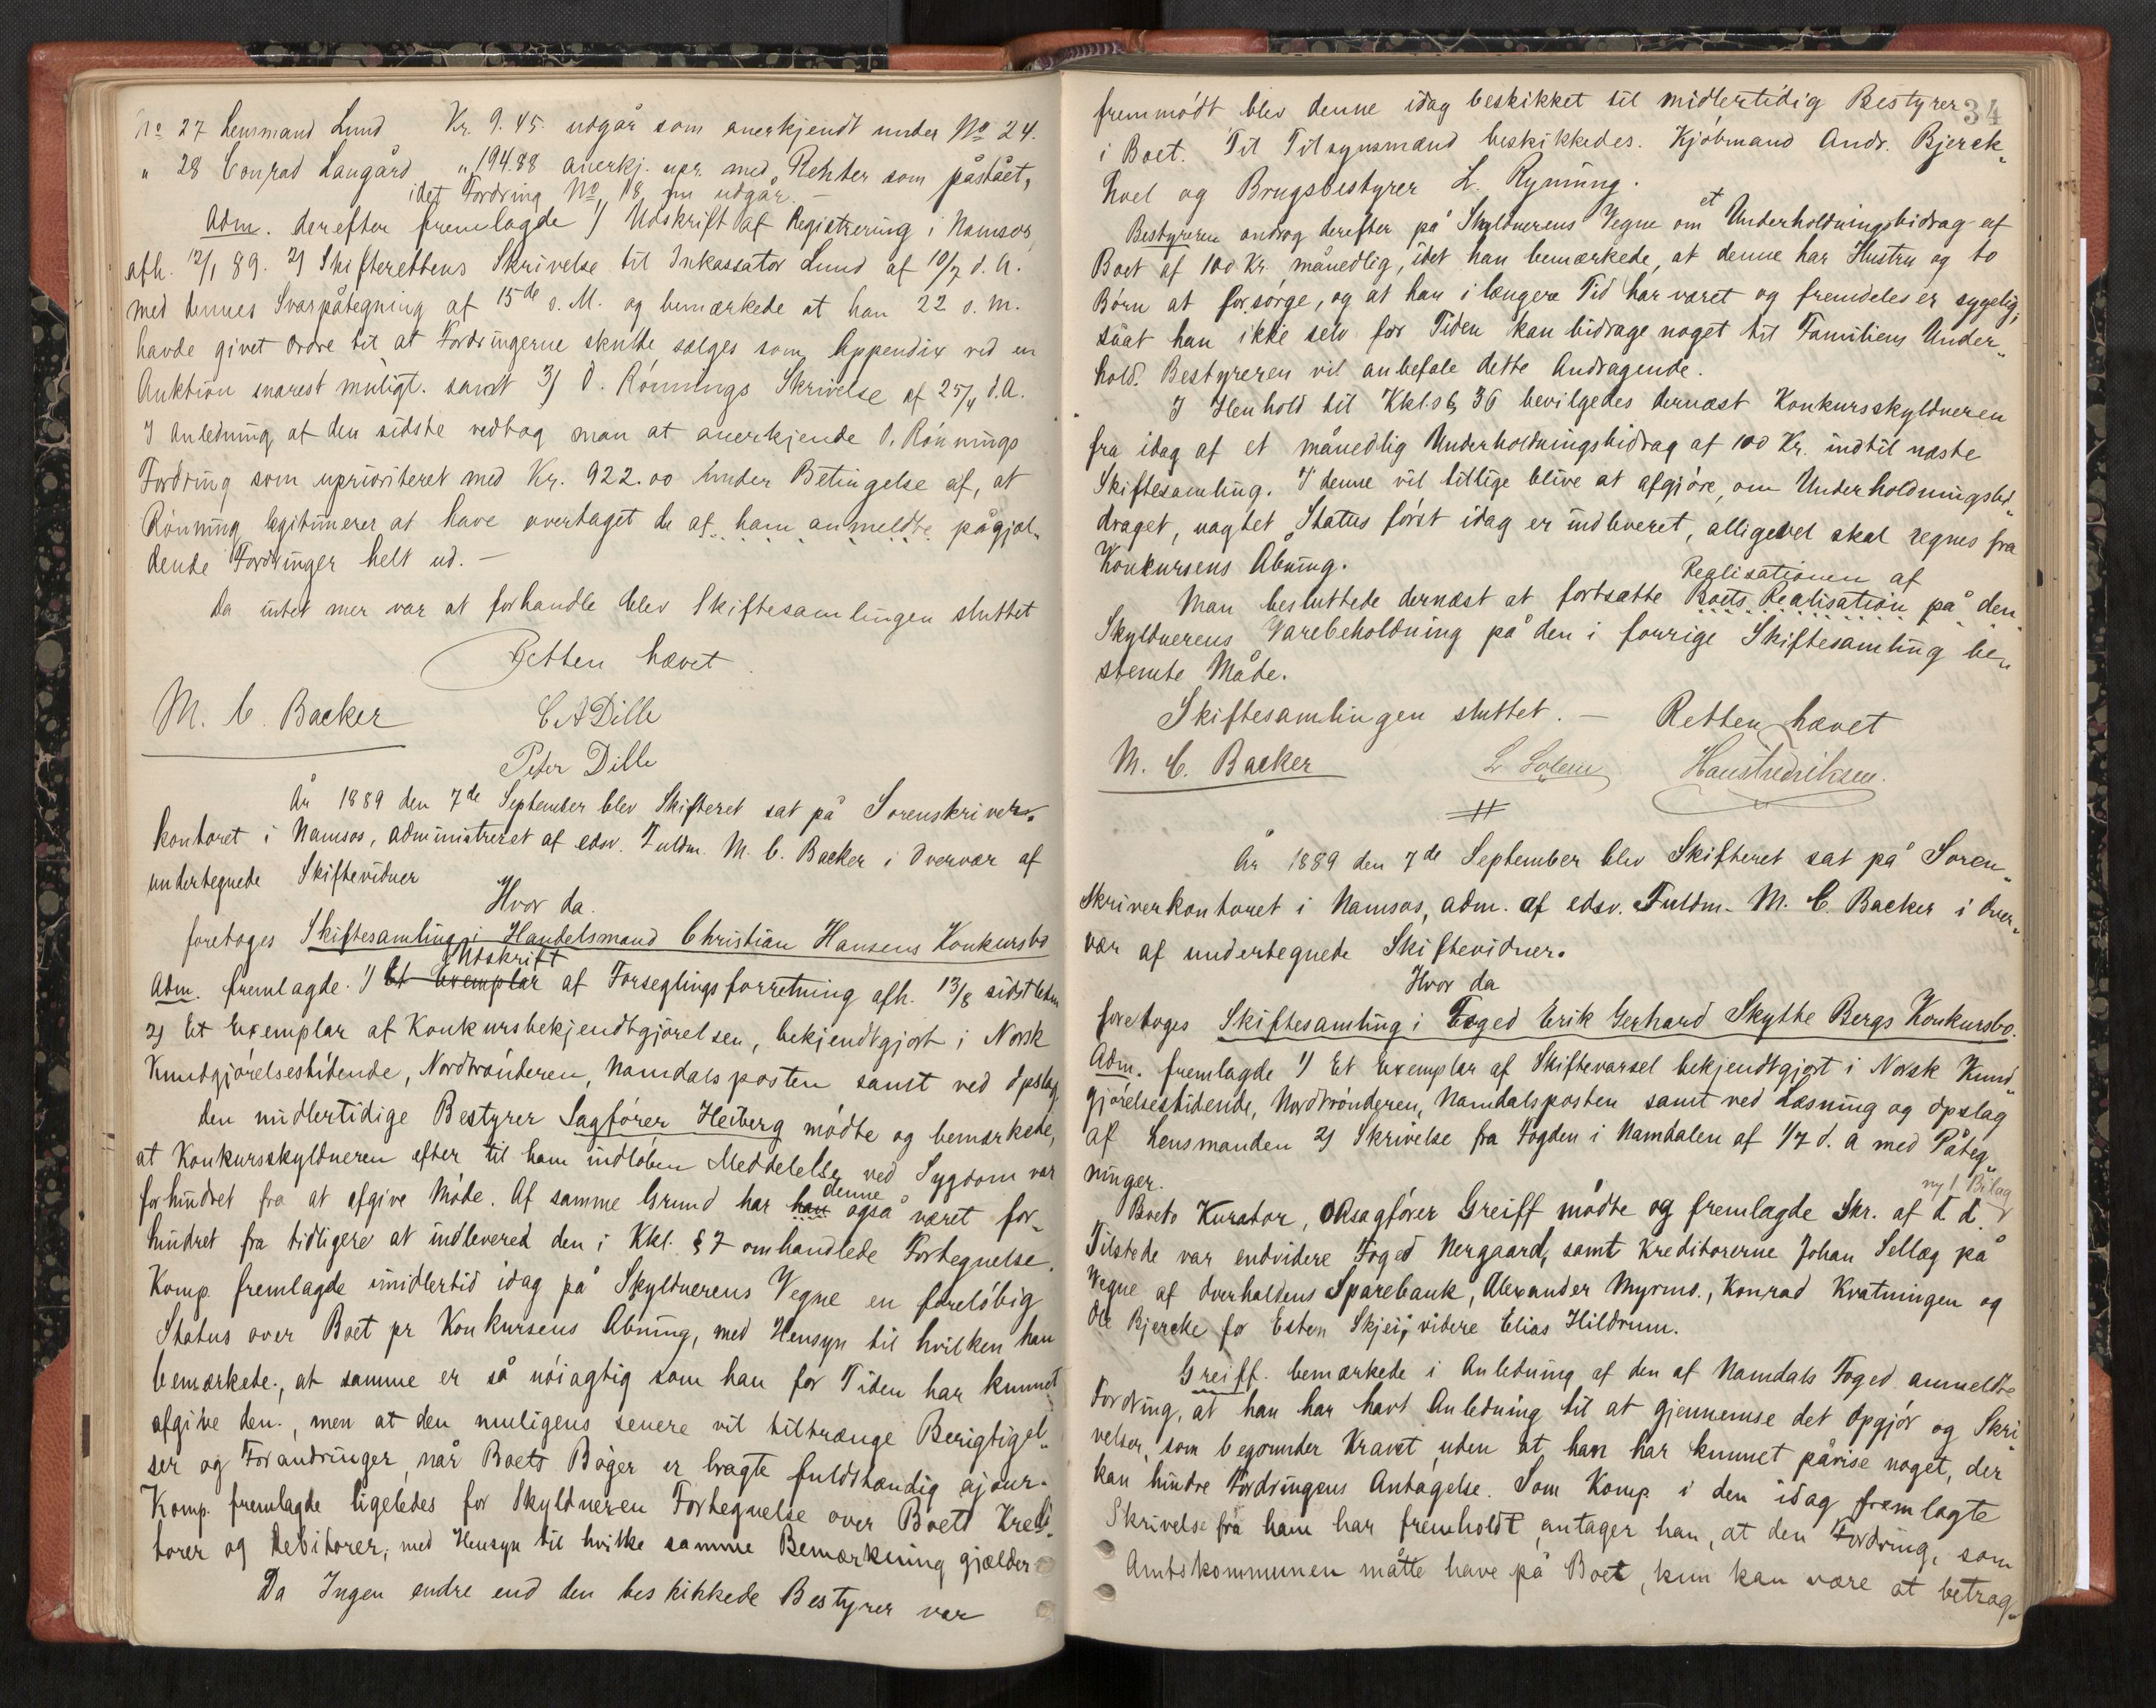 No 27 Lensmand Lund Kr. 9.45. udgår som anerkjendt under No 24.
" 28 Conrad Langård " 194.88 anerkj. upr. med Renter som påstået,
idet Fordring No 18 nu udgår. —
Adm. derefter fremlagde 1) Udskrift af Registrering i Namsos
afh. 12/1 89. 2) Skifterettens Skrivelse til Inkassator Lund af 10/7 d. A.
med dennes Svarpåtegning af 15de s. M. og bemærkede at han 22 s. m.
havde givet Ordre til at Fordringerne skulde sælges som Appendix ved en
Auktion snarest muligt. samt 3) O. Rönnings Skrivelse af 25/4 d.A.
I Anledning af den sidste vedtog man at anerkjende O. Rönnings
Fordring som uprioriteret med Kr. 922.00 under Betingelse af, at
Rönning legitimerer at have overtaget de af ham anmeldte pågjæl„
dende Fordringer helt ud. —
Da intet mer var at forhandle blev Skiftesamlingen sluttet
Retten hævet.
M. C. Backer C A Dille
Peter Dille
År 1889 den 7de September blev Skifteret sat på Sorenskriver„
kontoret i Namsos, administreret af edsv. Fuldm. M. C. Backer i Overvær af
undertegnede Skiftevidner
Hvor da
foretoges Skiftesamling i Handelsmand Christian Hansens Konkursbo
Udskrift
Adm. fremlagde. 1) Et Exemplar af Forseglingsforretning afh. 13/8 sidstleden
2) Et Exemplar af Konkursbekjendtgjörelsen, bekjendtgjort i Norsk
Kundgjörelsestidende, Nordtrönderen, Namdalsposten samt ved Opslag
den midlertidige Bestyrer Sagförer Heiberg mödte og bemærkede,
at Konkursskyldneren efter til ham indlöben Meddelelse ved Sygdom var
denne
forhindret fra at afgive Möde. Af samme Grund har han også været for„
hindret fra tidligere at indlevered den i Kkl. § 7 omhandlede Fortegnelse.
Komp. fremlagde imidlertid idag på Skyldnerens Vegne en forelöbig
Status over Boet pr Konkursens Åbning, med Hensyn til hvilken han
bemærkede, at samme er så nöiagtig som han for Tiden har kunnet
afgive den, men at den muligens senere vil tiltrænge Berigtigel„
ser og Forandringer, når Boets Böger er bragte fuldstændig ajour.
Komp. fremlagde ligeledes for Skyldneren Fortegnelse over Boets Kredi„
torer og Debitorer, med Hensyn til hvilke samme Bemærkning gjælder
Da Ingen andre end den beskikkede Bestyrer var
34
fremmödt blev denne idag beskikket til midlertidig Bestyrer
i Boet. Til Tilsynsmænd beskikkedes. Kjöbmand Andr. Bjerck„
hoel og Brugsbestyrer L. Ryning.
et
Bestyreren androg derefter på Skyldnerens Vegne om Underholdningsbidrag af
Boet af 100 Kr. månedlig, idet han bemærkede, at denne har Hustru og to
Börn at forsörge, og at han i længere Tid har været og fremdeles er sygelig,
såat han ikke selv for Tiden kan bidrage noget til Familiens Under„
hold. Bestyreren vil anbefale dette Andragende.
I Henhold til Kkl.s § 36 bevilgedes dernæst Konkursskyldneren
fra idag af et månedlig Underholdningsbidrag af 100 Kr. indtil næste
Skiftesamling. I denne vil tillige blive at afgjöre, om Underholdningsbi„
draget, uagtet Status först idag er indleveret, alligevel skal regnes fra
Konkursens Åbning.
Realisationen af
Man besluttede dernæst at fortsætte Boets Realisation på den„
Skyldnerens Varebeholdning på den i forrige Skiftesamling be„
stemte Måde.
Skiftesamlingen sluttet. — Retten hævet
M. C. Backer L Solem Hans Fredriksen.
År 1889 den 7de September blev Skifteret sat på Soren„
skriverkontoret i Namsos, adm. af edsv. Fuldm. M. C. Backer i Over„
vær af undertegnede Skiftevidner.
Hvor da
foretoges Skiftesamling i Foged Erik Gerhard Skytte Bergs Konkursbo.
Adm. fremlagde 1) Et Exemplar af Skiftevarsel bekjendtgjort i Norsk Kund„
gjörelsestidende, Nordtrönderen, Namdalsposten samt ved Læsning og Opslag
af Lensmanden 2) Skrivelse fra Fogden i Namdalen af 1/7 d. a med Påteg„
ninger.
ny 1 Bilag
Boets Kurator, Oksagförer Greiff mödte og fremlagde Skr. af d. d.
Tilstede var endvidere Foged Nergaard, samt Kreditorerne Johan Sellæg på
Vegne af Overhaldens Sparebank, Alexander Myrmo., Konrad Kvatningen og
Ole Bjercke for Esten Skjei, videre Elias Hildrum.
Greiff. bemærkede i Anledning af den af Namdals Foged anmeldte
Fordring, at han har havt Anledning til at gjennemse det Opgjör og Skri„
velser, som begrunder Kravet, uden at han har kunnet påvise noget, der
kan hindre Fordringens Antagelse. Som Komp. i den idag fremlagte
Skrivelse fra ham har fremholdt, antager han, at den Fordring, som
Amtskommunen måtte have på Boet, kun kan være at betrag„